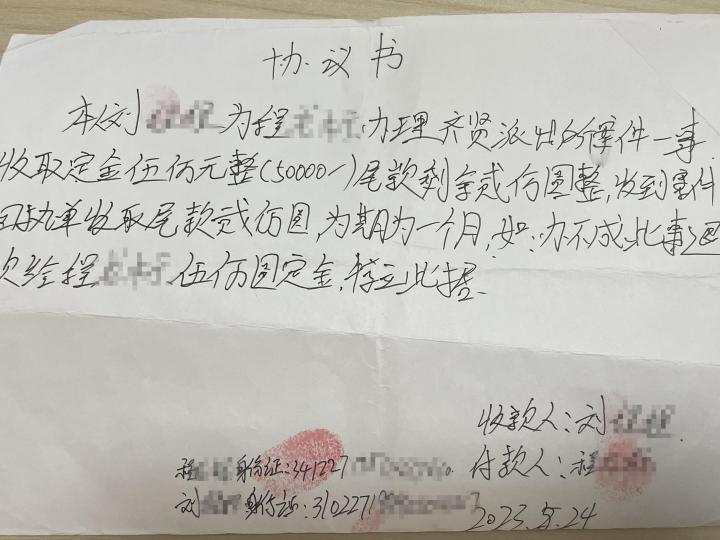 协议书
本人刘 为程 办理齐贤派出所案件一事
收取定金伍仟元整(50000-)尾款剩余贰仟圆整,收到案件
回执单收取尾款贰仟圆,为期为一个月,如:办不成此事退
给程 伍仟圆定金,特立此据.
收款人:刘
程 身份证:341227
付款人:程
刘 身份证:310227
2023.5.24